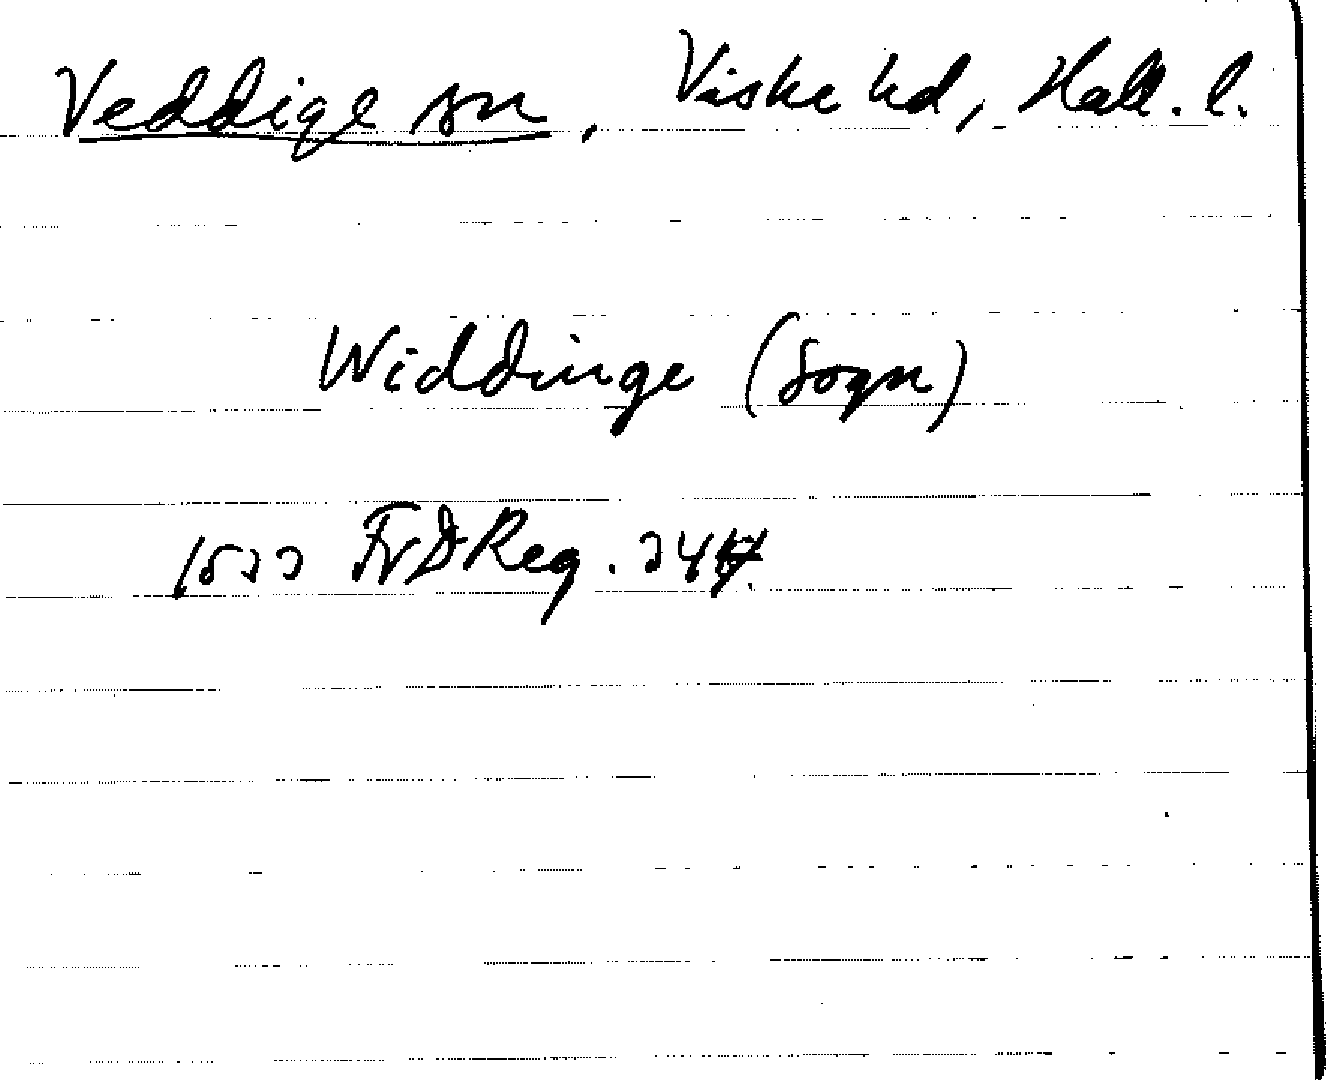 Veddige sn, Viske hd, Hall. l.
Widdinge (Sogn)
Fr I Reg.